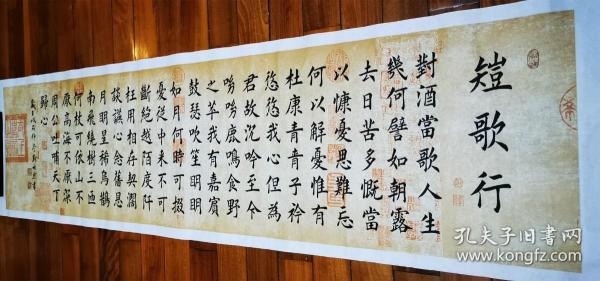 短歌行
對酒當歌人生
幾何譬如朝露
去日苦多慨當
以慷憂思難忘
何以解憂惟有
杜康青青子衿
悠悠我心但為
君故沉吟至今
呦呦鹿鳴食野
之苹我有嘉賓
鼓瑟吹笙明明
如月何時可掇
憂從中來不可
斷絕越陌度阡
枉用相存契闊
談讌心念舊恩
月明星稀烏鵲
南飛繞樹三匝
何枝可依山不
厭高海不厭深
周公吐哺天下
歸心
孔夫子旧書网
www.kongfz.com